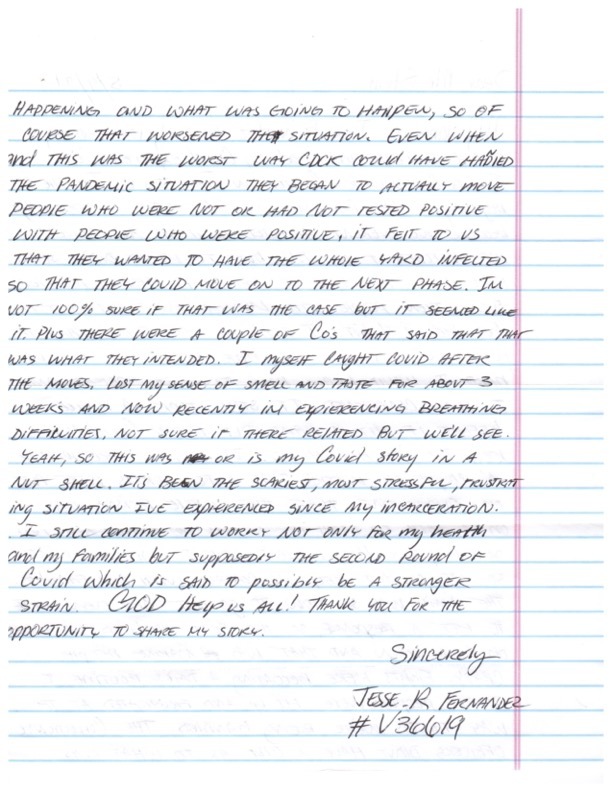 HAPPENING AND WHAT WAS GOING TO HAPPEN, SO OF
COURSE THAT WORSENED THE SITUATION. EVEN WHEN
and THIS WAS THE WORST WAY CDCR COULD HAVE HANDLED
THE PANDEMIC SITUATION THEY BEGAN TO ACTUALLY MOVE
PEOPLE WHO WERE NOT OR HAD NOT TESTED POSITIVE
WITH PEOPLE WHO WERE POSITIVE, IT FELT TO US
THAT THEY WANTED TO HAVE THE WHOLE YARD INFECTED
SO THAT THEY COULD MOVE ON TO THE NEXT PHASE. IM
NOT 100% SURE IF THAT WAS THE CASE BUT IT SEEMED LIKE
IT. PLUS THERE WERE A COUPLE OF CO'S THAT SAID THAT THAT
WAS WHAT THEY INTENDED. I MYSELF CAUGHT COVID AFTER
THE MOVES. LOST MY SENSE OF SMELL AND TASTE FOR ABOUT 3
WEEKS AND NOW RECENTLY IM EXPIERENCING BREATHING
DIFFICULTIES, NOT SURE IF THERE RELATED BUT WE'LL SEE.
YEAH, SO THIS WAS OR IS MY COVID STORY IN A
NUT SHELL. ITS BEEN THE SCARIEST, MOST STRESSFUL, FRUSTRAT
ING SITUATION I'VE EXPIERENCED SINCE MY INCARCERATION.
I STILL CONTINUE TO WORRY NOT ONLY FOR MY HEALTH
and my Families BUT SUPPOSEDLY THE SECOND ROUND OF
COVID WHICH IS SAID TO POSSIBLY BE A STRONGER
STRAIN. GOD HELP US ALL! THANK YOU FOR THE
OPPORTUNITY TO SHARE MY STORY.
Sincerely
JESSE R FERNANDEZ
# V36619